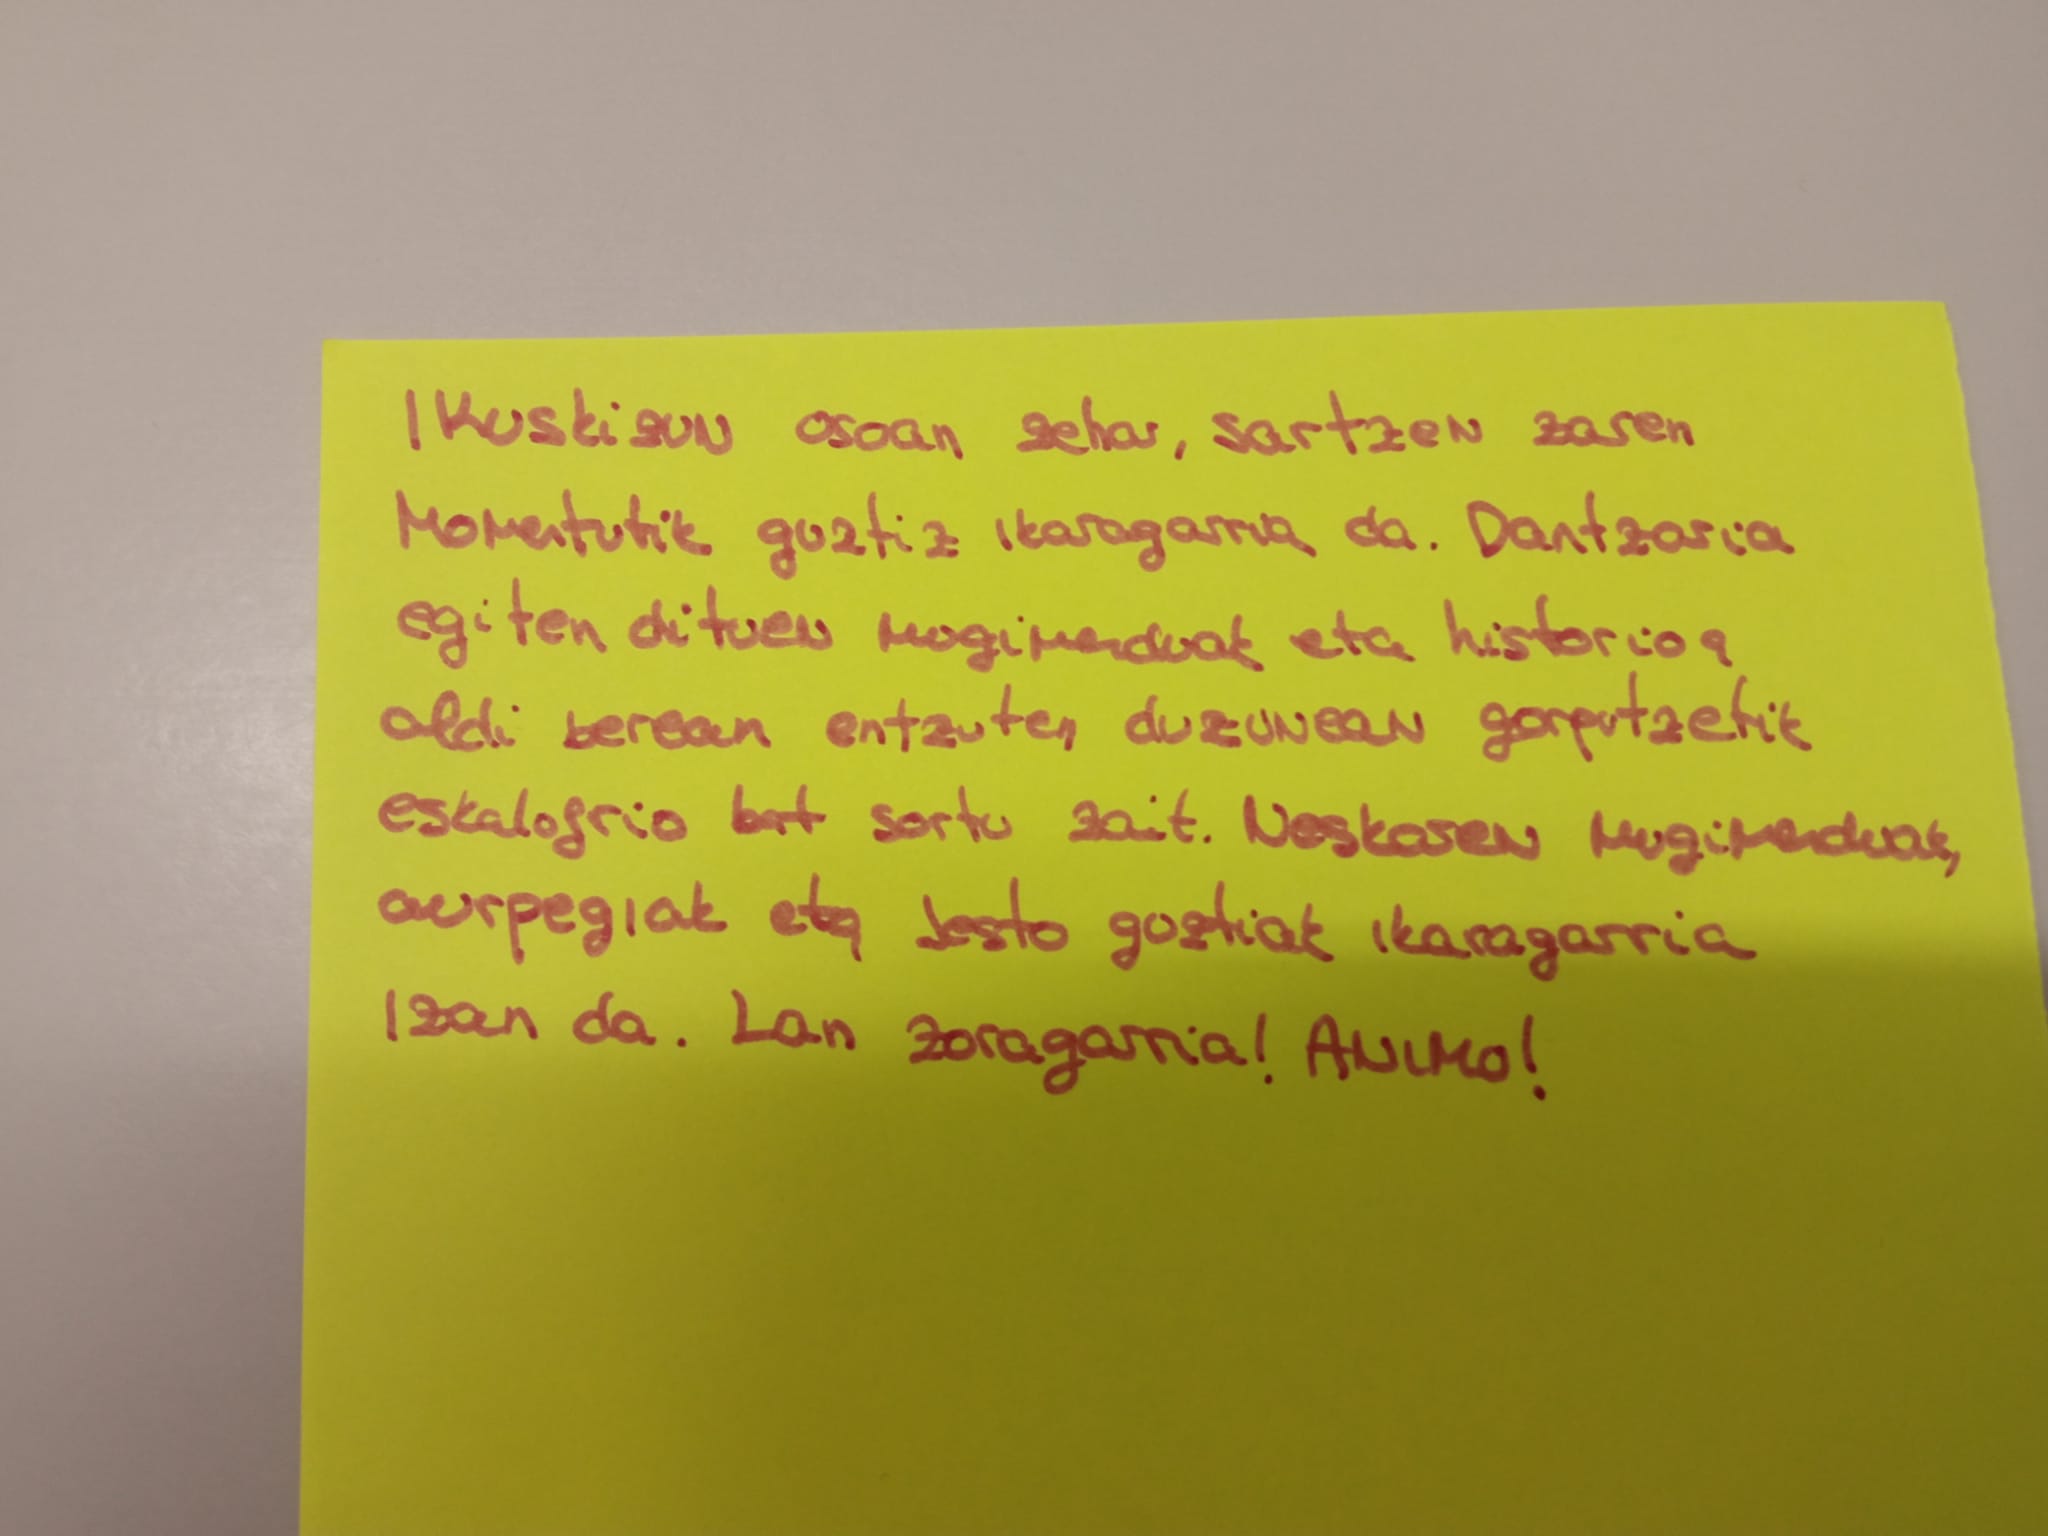 Ikuskizun osoan zehar, sartzen zaren
momentutik guztiz ikaragarria da. Dantzaria
egiten dituen mugimenduak eta historioa
aldi berean entzuten duzunean gorputzetik
eskalofrio bat sortu zait. Neskaren mugimenduak,
aurpegiak eta Jesto guztiak ikaragarria
izan da. Lan zoragarria! ANIMO!